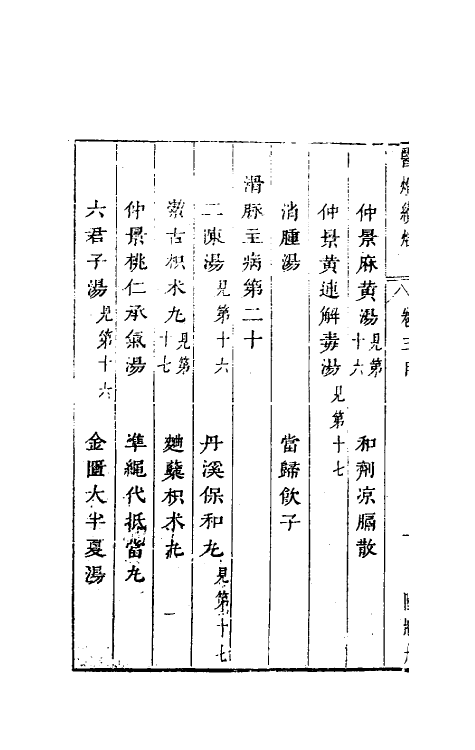 醫燈續焰 卷三目
仲景麻黃湯見第十六 和劑涼膈散
仲景黃連解毒湯見第十七
消腫湯 當歸飲子
滑脉主病第二十
二陳湯見第十六 丹溪保和丸見第十七
潔古枳朮丸見第十七 麯蘗枳朮丸
仲景桃仁承氣湯 準繩代抵當丸
六君子湯見第十六 金匱大半夏湯